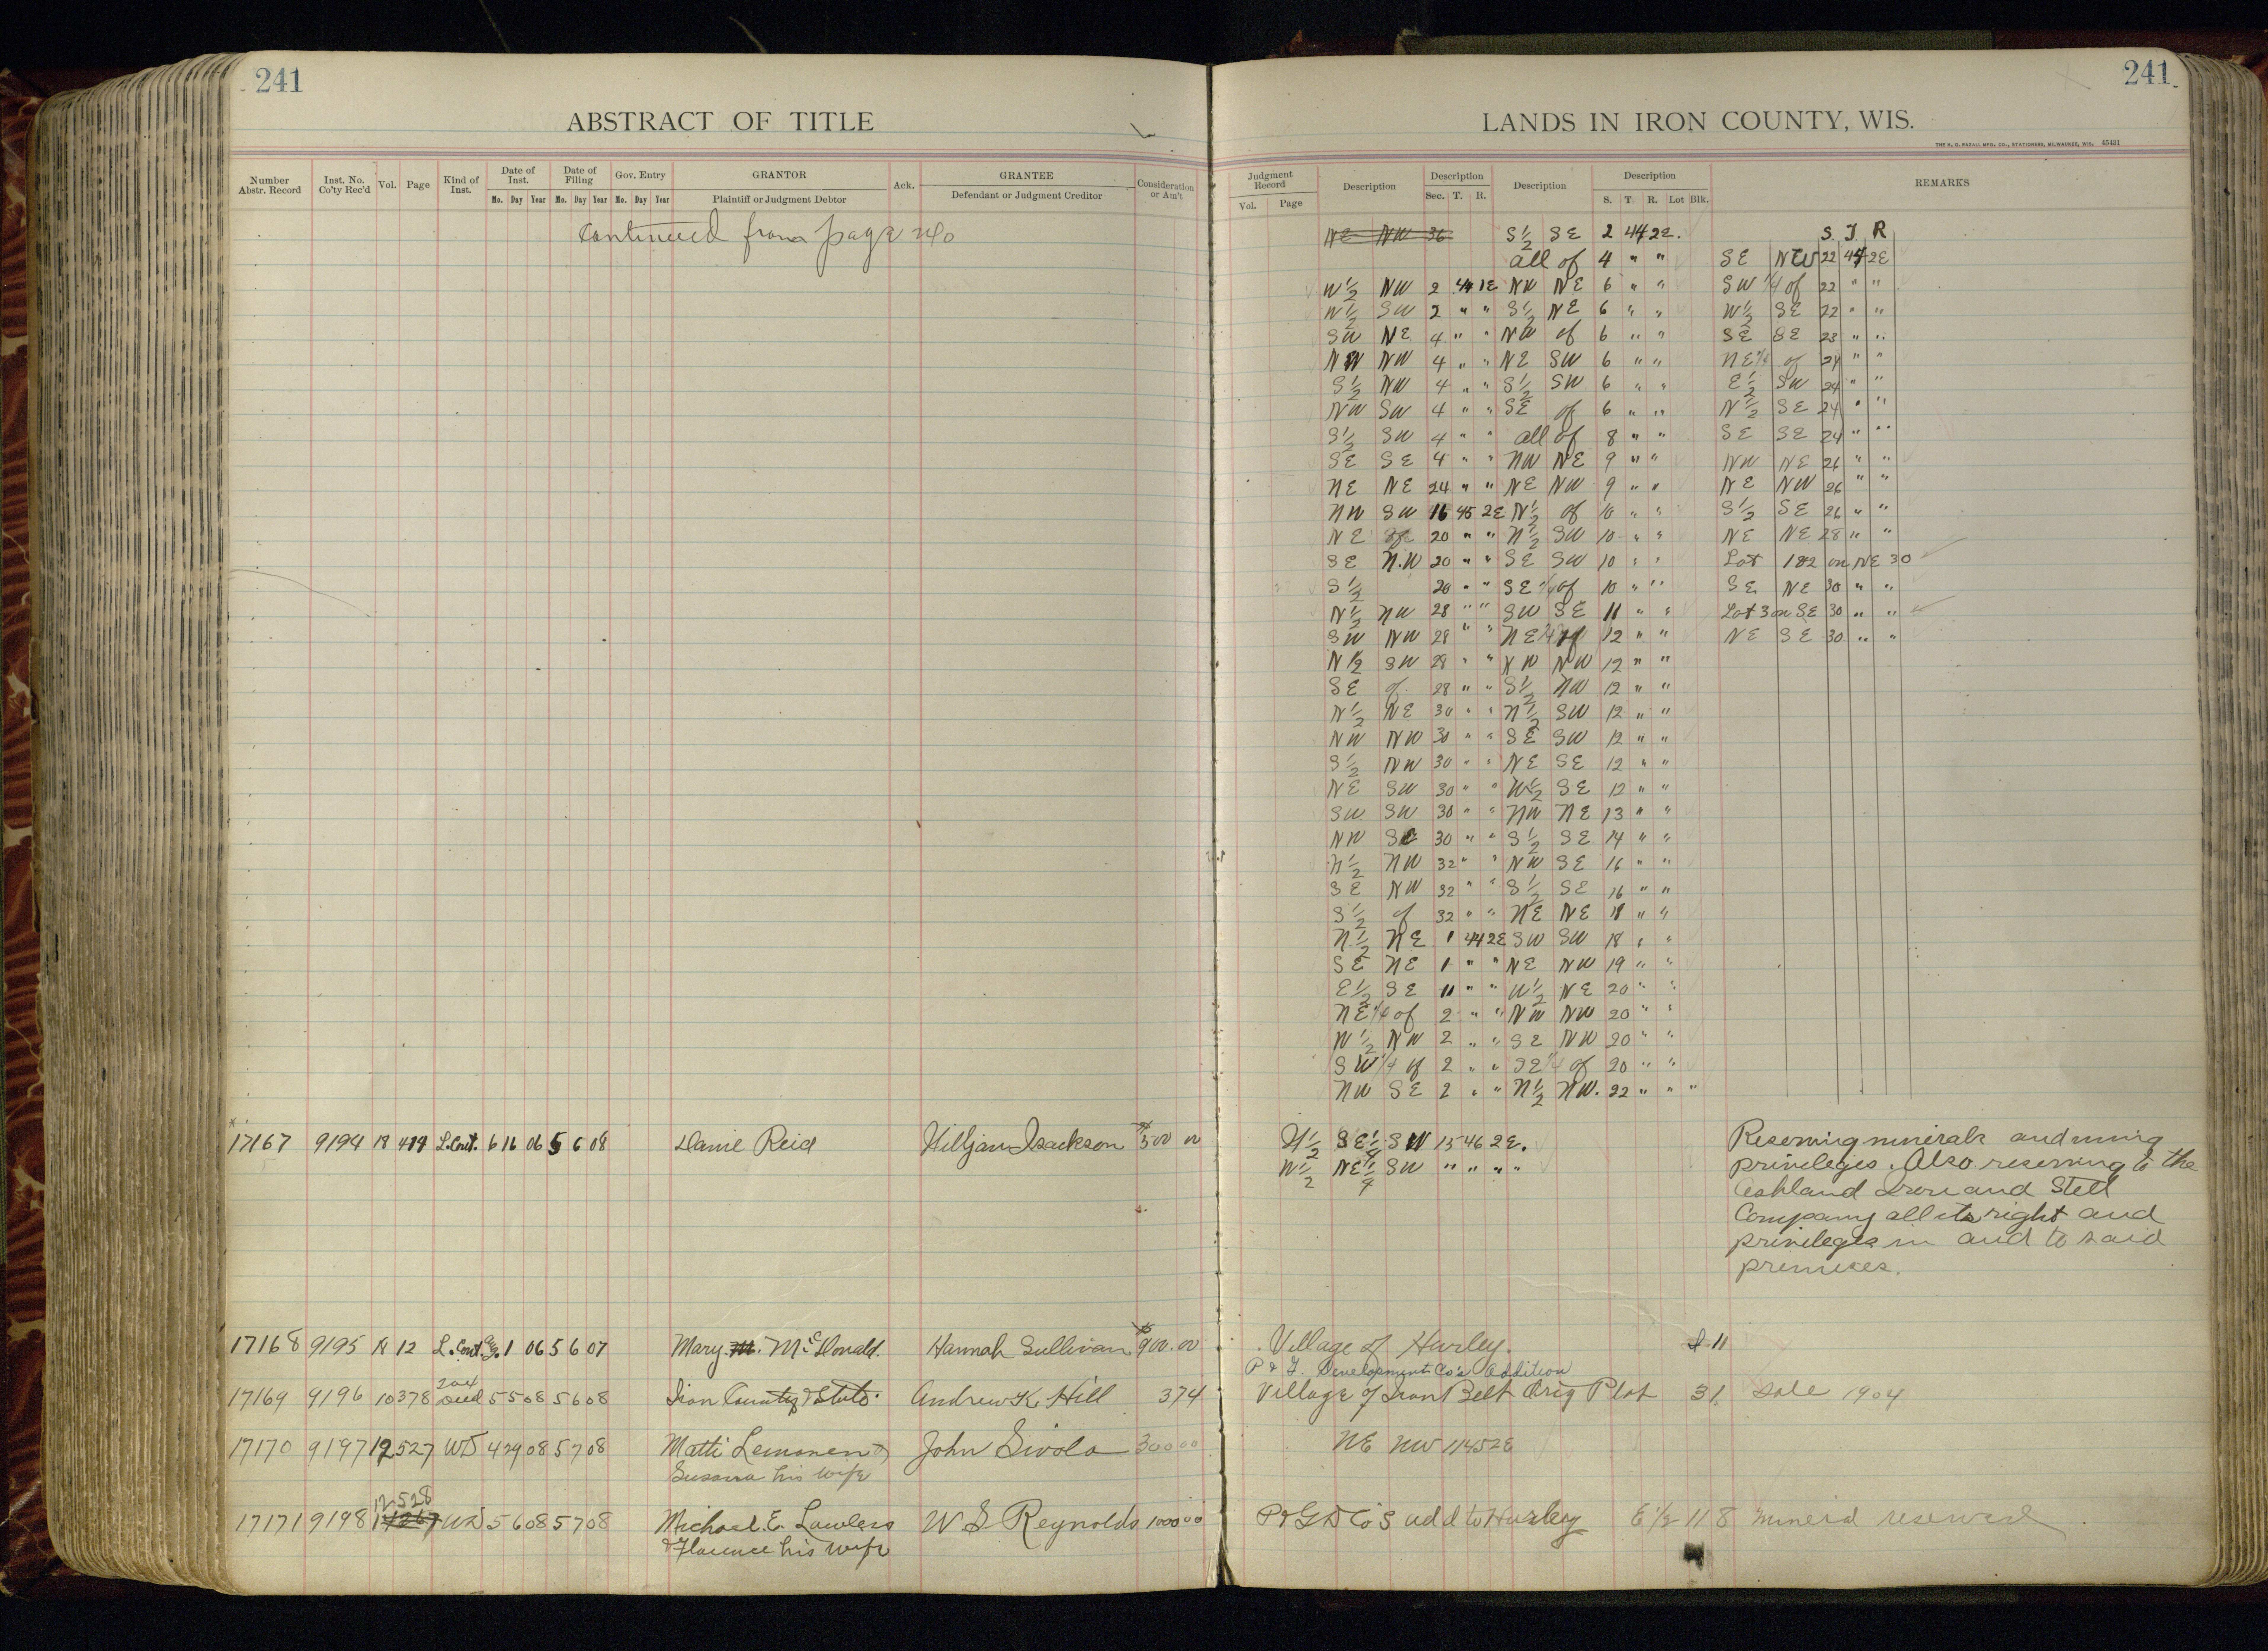 241
ABSTRACT OF TITLE
Number Abstr. Record Inst. No. Co'ty Rec'd Vol. Page Kind of Inst. Date of Inst. Mo. Day Year Date of Filing Mo. Day Year Gov. Entry Mo. Day Year GRANTOR Plaintiff or Judgment Debtor Ack. GRANTEE Defendant or Judgment Creditor Consideration or Am't
continued from page 240
17167 9194 18 419 L.Cont. 6 16 06 5 6 08 Danie Reid Hilljam Isackson $500 00
17168 9195 18 12 L.Cont. Aug. 1 06 5 6 07 Mary M. McDonald. Hannah Sullivan $900.00
17169 9196 10 378 Deed 5 5 08 5 6 08 Iron County & State Andrew K. Hill 374
17170 9197 12 527 WD 4 29 08 5 7 08 Matti Lemonen & John Sivola 300 00
Susanna his wife
12 528
17171 9198 WD 5 6 08 5 7 08 Michael E. Lawless W S Reynolds 1000 00
& Florence his wife
241
LANDS IN IRON COUNTY, WIS.
THE H. G. RAZALL MFG. CO., STATIONERS, MILWAUKEE, WIS. 65431
Judgment Record Vol. Page Description Description Sec. T. R. Description Description S. T. R. Lot Blk. REMARKS
NE NW 36 S½ SE 2 44 2E. S. T. R
all of 4 " " SE NW 22 44 2E
W½ NW 2 44 1E NW NE 6 " " SW ¼ of 22 " "
W½ SW 2 " " S½ NE 6 " " W½ SE 22 " "
SW NE 4 " " NW of 6 " " SE SE 23 " "
NW NW 4 " " NE SW 6 " " NE¼ of 24 " "
S½ NW 4 " " S½ SW 6 " " E½ SW 24 " "
NW SW 4 " " SE of 6 " " N½ SE 24 " "
S½ SW 4 " " all of 8 " " SE SE 24 " "
SE SE 4 " " NW NE 9 " " NW NE 26 " "
NE NE 24 " " NE NW 9 " " NE NW 26 " "
NW SW 16 45 2E N½ of 10 " " S½ SE 26 " "
NE of 20 " " N½ SW 10 " " NE NE 28 " "
SE N.W 20 " " SE SW 10 " " Lot 1&2 on NE 30
S½ 20 " " SE ¼ of 10 " " SE NE 30 " "
N½ NW 28 " " SW SE 11 " " Lot 3 on SE 30 " "
SW NW 28 " " NE ¼ of 12 " " NE SE 30 " "
N½ SW 28 " " NW NW 12 " "
SE of 28 " " S½ NW 12 " "
N½ NE 30 " " N½ SW 12 " "
NW NW 30 " " SE SW 12 " "
S½ NW 30 " " NE SE 12 " "
NE SW 30 " " W½ SE 12 " "
SW SW 30 " " NW NE 13 " "
NW SE 30 " " S½ SE 14 " "
N½ NW 32 " " NW SE 16 " "
SE NW 32 " " S½ SE 16 " "
S½ of 32 " " NE NE 18 " "
N½ NE 1 44 2E SW SW 18 " "
SE NE 1 " " NE NW 19 " "
E½ SE 11 " " W½ NE 20 " "
NE ¼ of 2 " " NW NW 20 " "
W½ NW 2 " " SE NW 20 " "
SW ¼ of 2 " " SE ¼ of 20 " "
NW SE 2 " " N½ NW. 22 " " "
N½ SE¼ SW 15 46 2E. Reserving minerals and mining
W½ NE¼ SW " " " " privileges. Also reserving to the
Ashland Iron and Stell
Company all its right and
privileges in and to said
premises.
Village of Hurley. 11
P & G. Development Co's Addition
Village of Iron Belt Orig Plat 3 1. Sale 1904
NE NW 11 45 2E
P & G D Co's add to Hurley E½ 11 8 mineral reserved